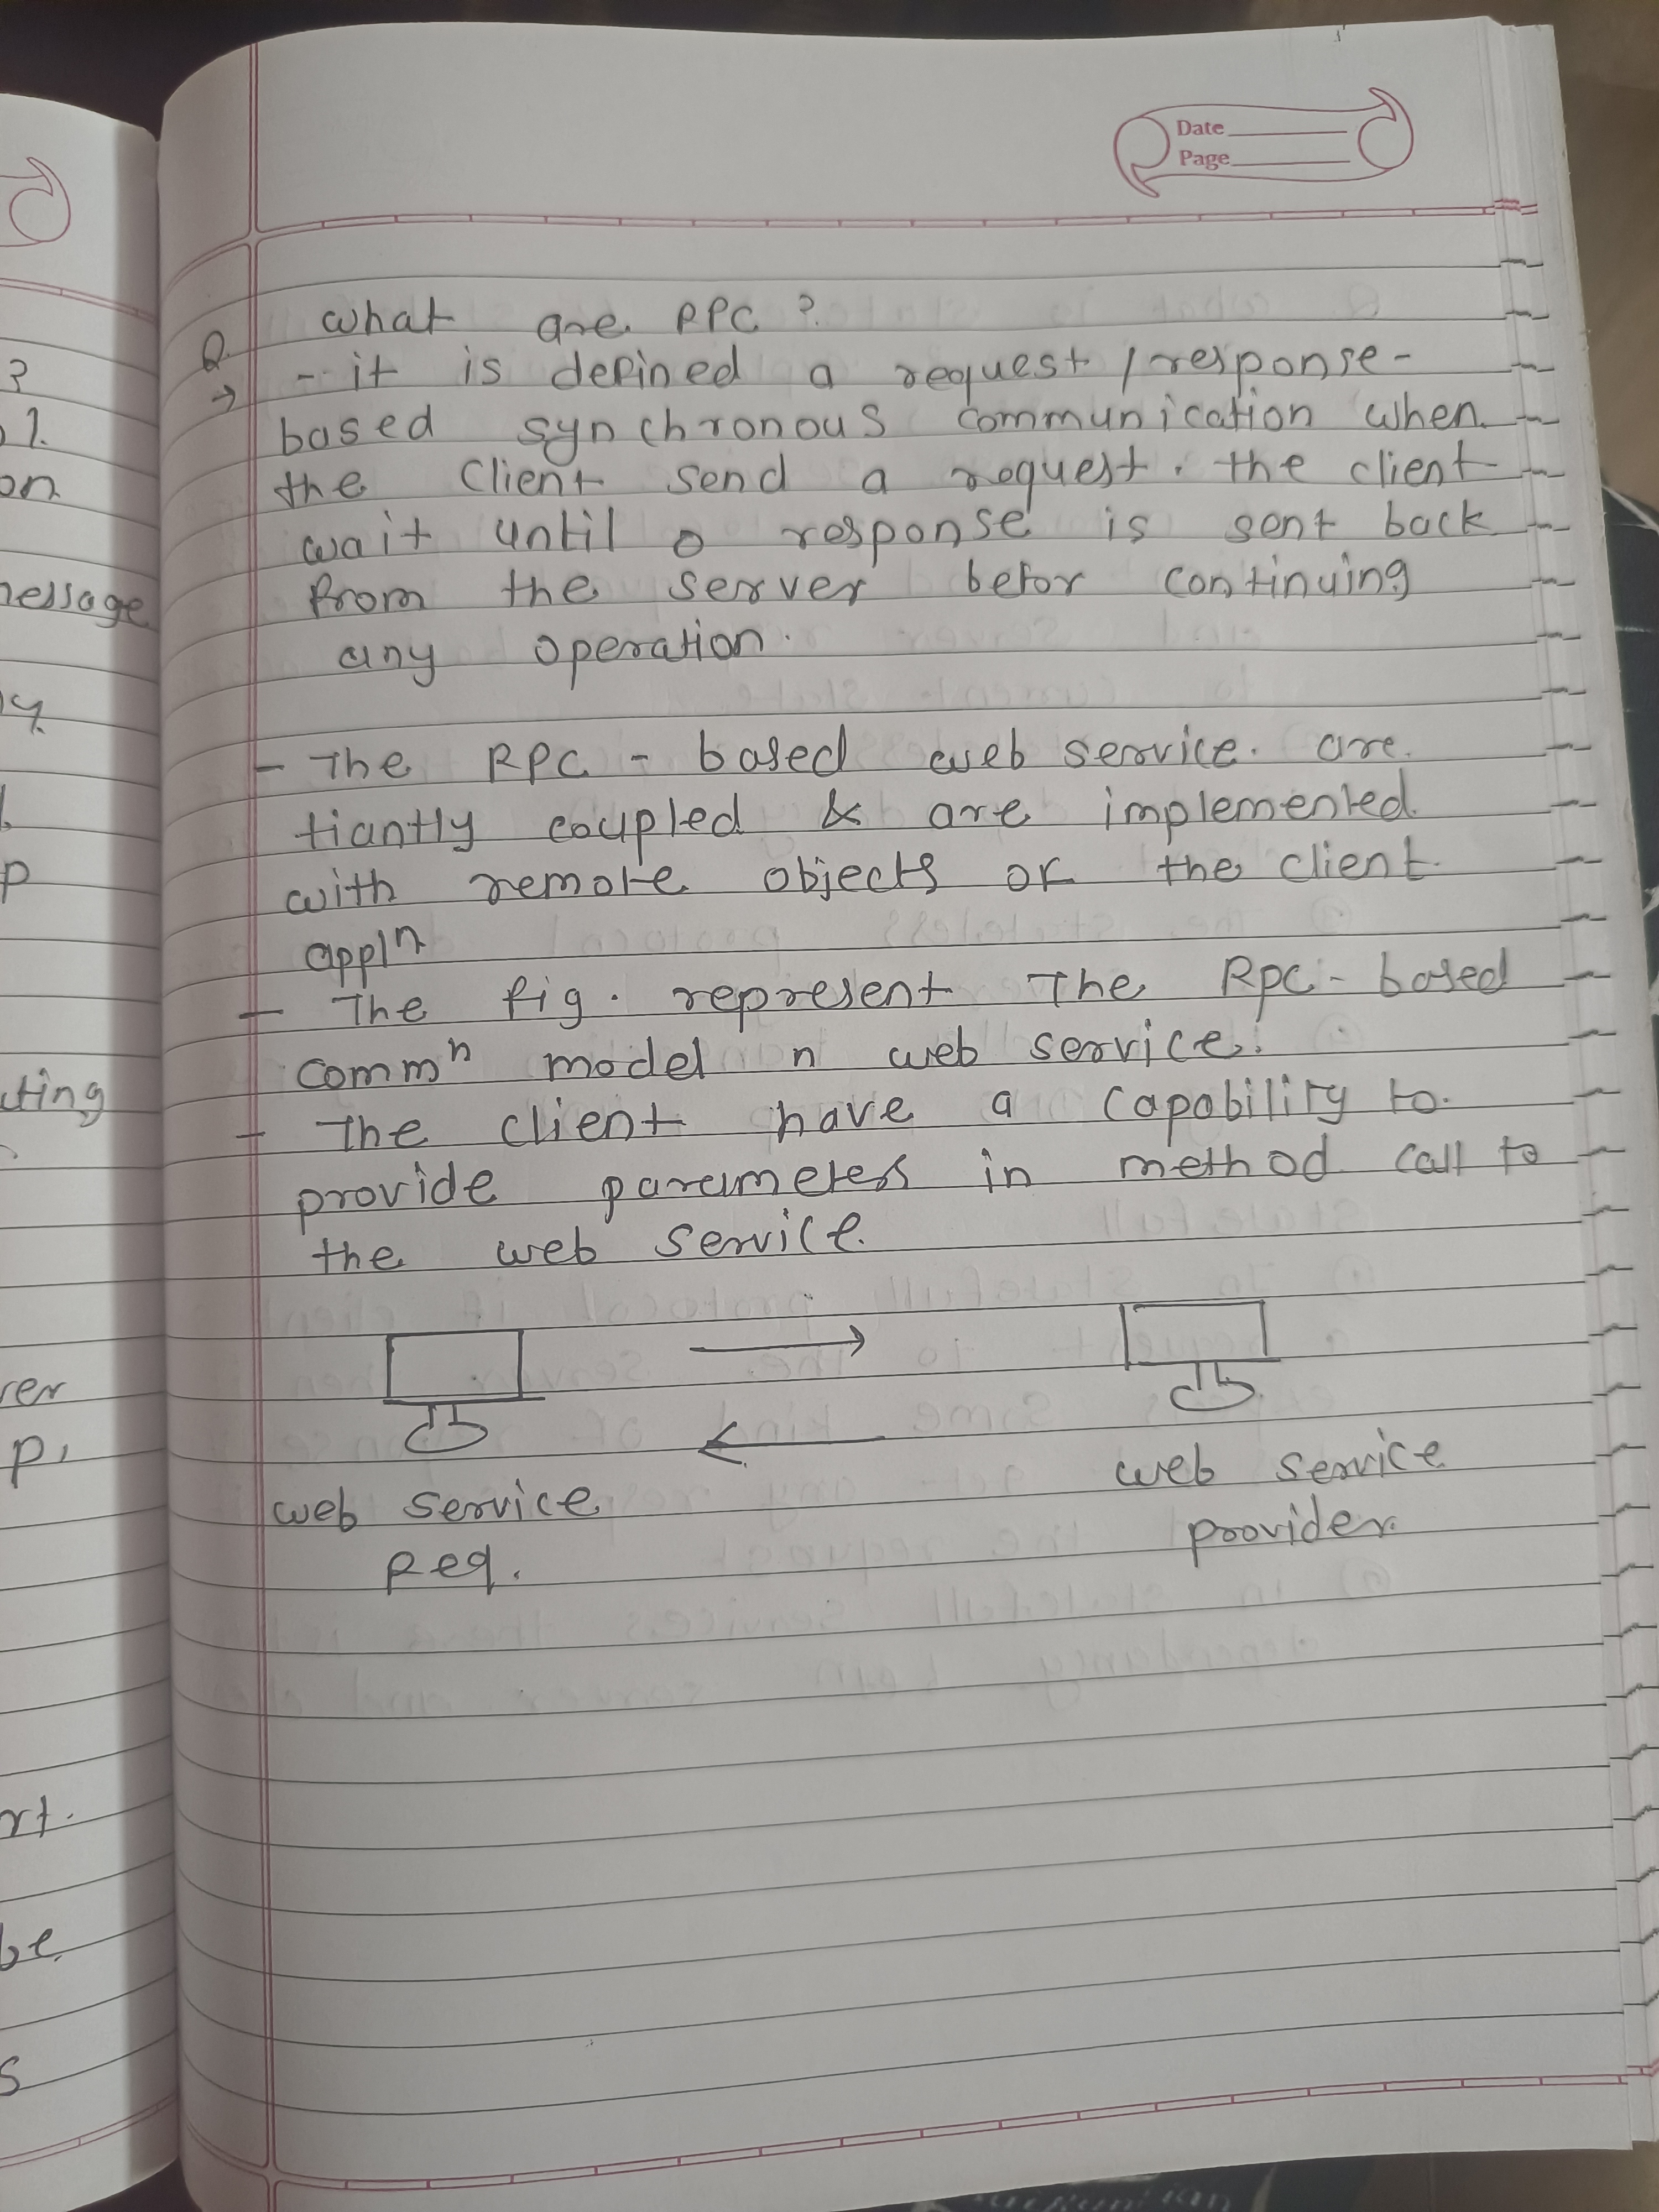 Date
Page
Q. what are RPC ?
→ - it is defined a request / response-
based synchronous communication when
the client send a request. the client
wait until a response is sent back
from the server befor continuing
any operation.
- The RPC - based web service. are
tiantly coupled & are implemented
with remote objects or the client
appln
- The fig. represent The Rpc - based
commn model n web service.
- The client have a capability to
provide parameters in method call to
the web service.
web service
req.
web service
provider.
?
1.
on
message
y.
p
cting
ver
p,
rt.
be
s